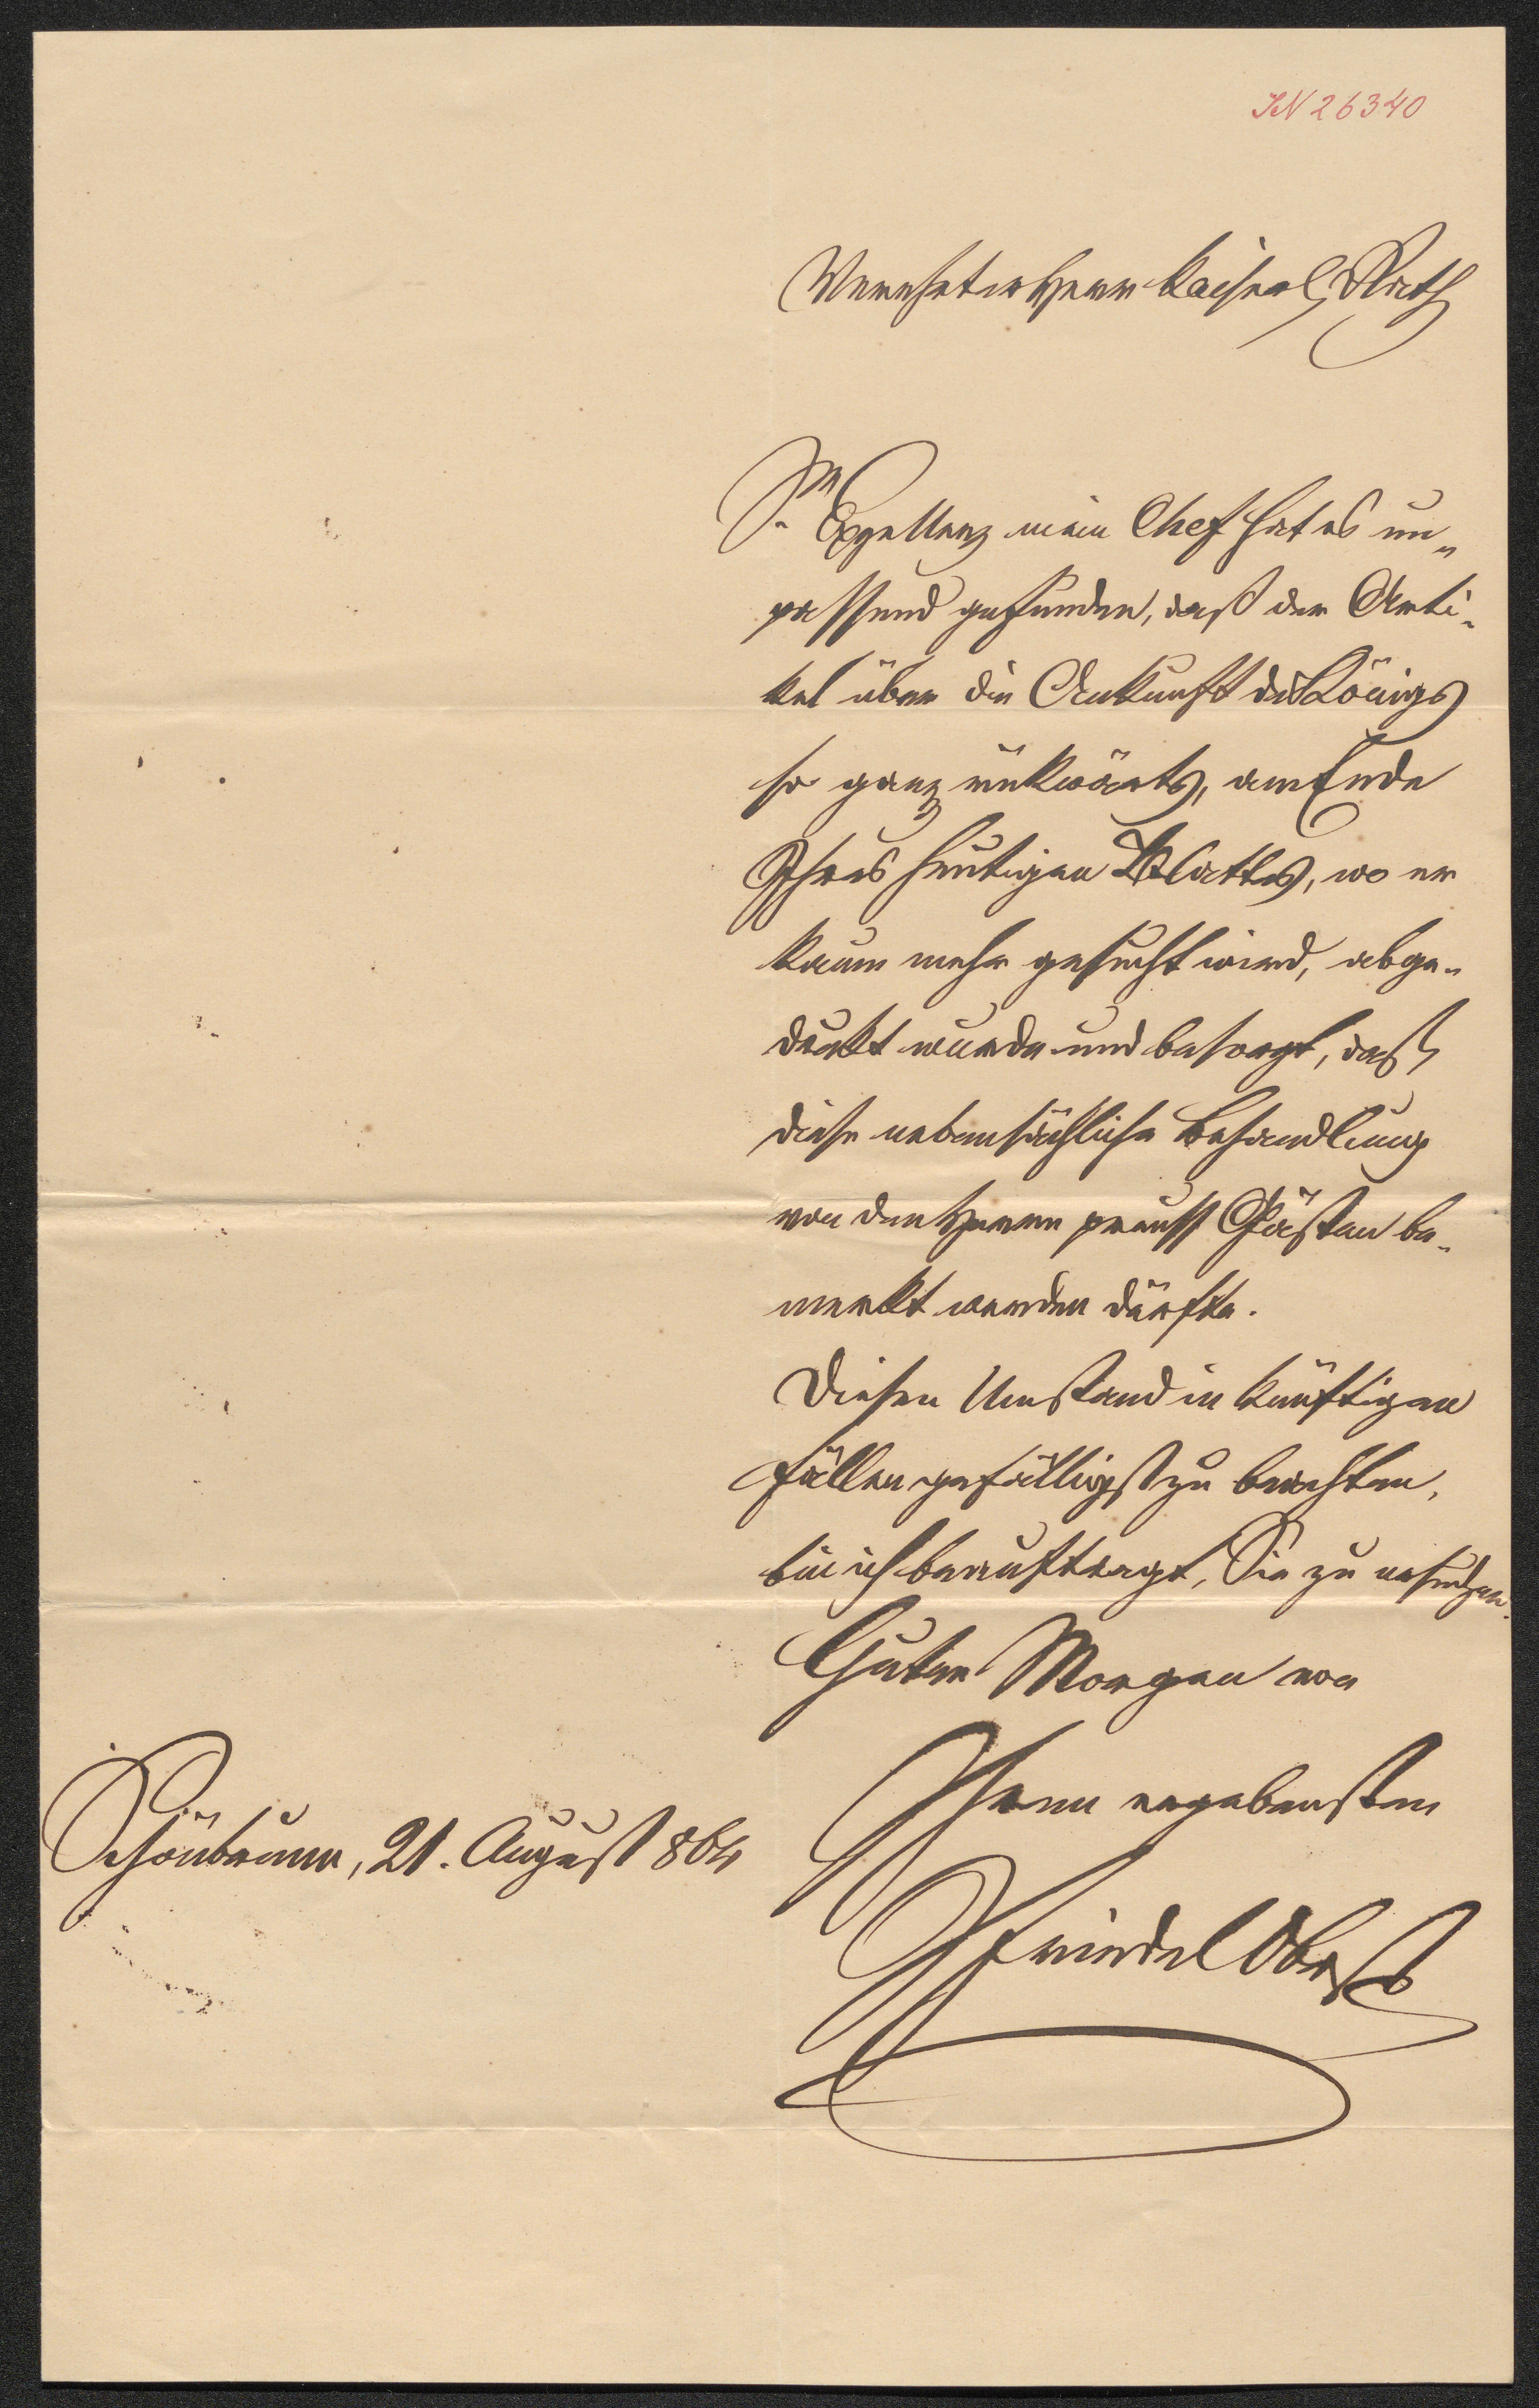 IN 26340
Verehrter Herr kaiserl Rath
Se Exzellenz mein Chef hat es un„
passend gefunden, daß der Arti„
kel über die Ankunft des Königs
so ganz rükwärts, am Ende
Ihres heutigen Blattes, wo er
kaum mehr gesucht wird, abge„
drukt wurde und besorgt, daß
diese nebensächliche Behandlung
von den Herrn preuss Gästen be„
merkt werden dürfte.
Diesen Umstand in künftigen
Fällen gefälligst zu beachten,
bin ich beauftragt, Sie zu ersuchen.
Guten Morgen von
Ihrem ergebensten
Schönbrunn, 21. August 864
Friedel Obst